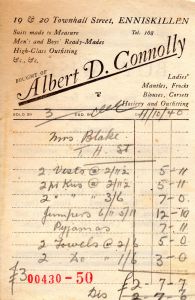 19 & 20 Townhall Street, ENNISKILLEN
Suits made to Measure
Tel. 168
Men's and Boys' Ready-Mades
High-Class Outfitting
&c., &c.
BOUGHT OF
Albert D. Connolly
Ladies'
Mantles, Frocks
Blouses, Corsets
Hosiery and Outfitting
SOLD BY 3 11/10/40
Mrs Blake
T. H. St
2 Vests @ 2/11½ 5-11
2 @ 2/11½ 5-11
2 " " 3/6 7-0
Jumpers 6/11 5/11 12-10
Pyjamas 7-11
2 Towels @ 2/6 5-0
2 Do " 1/6 3-0
£3 £2-7-7
00430-50
Dis 2-7